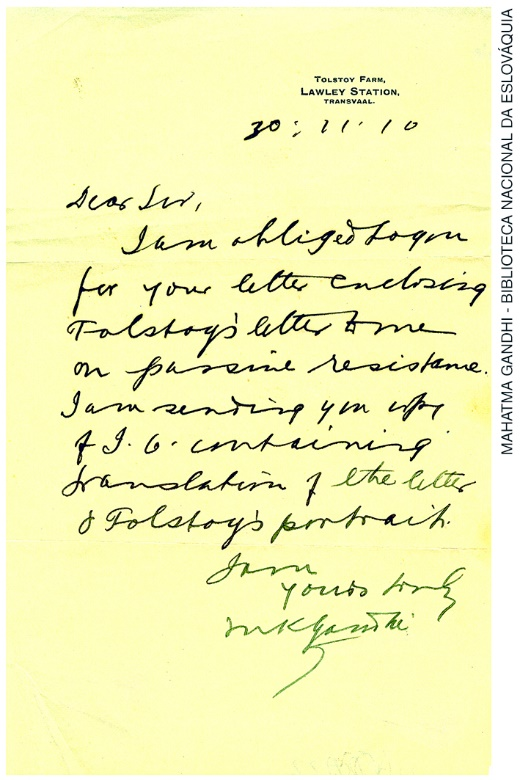 TOLSTOY FARM,
LAWLEY STATION,
TRANSVAAL.
30: 11. 10
Dear Sir,
I am obliged to you
for your letter enclosing
Tolstoy's letter to me
on passive resistance.
I am sending you copy
of I. O. containing
translation of the letter
& Tolstoy's portrait.
I am
yours truly
MK Gandhi
MAHATMA GANDHI - BIBLIOTECA NACIONAL DA ESLOVÁQUIA